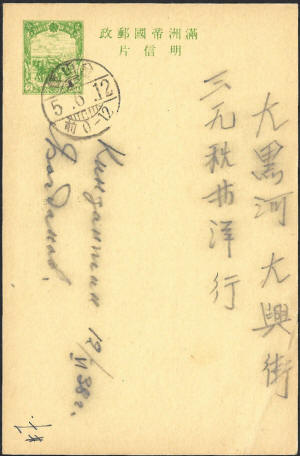 政郵國帝洲滿
片信明
5.6.12
前0-12
大黑河大興街
三九秋林洋行
12/VI 38 г.
Богданов.